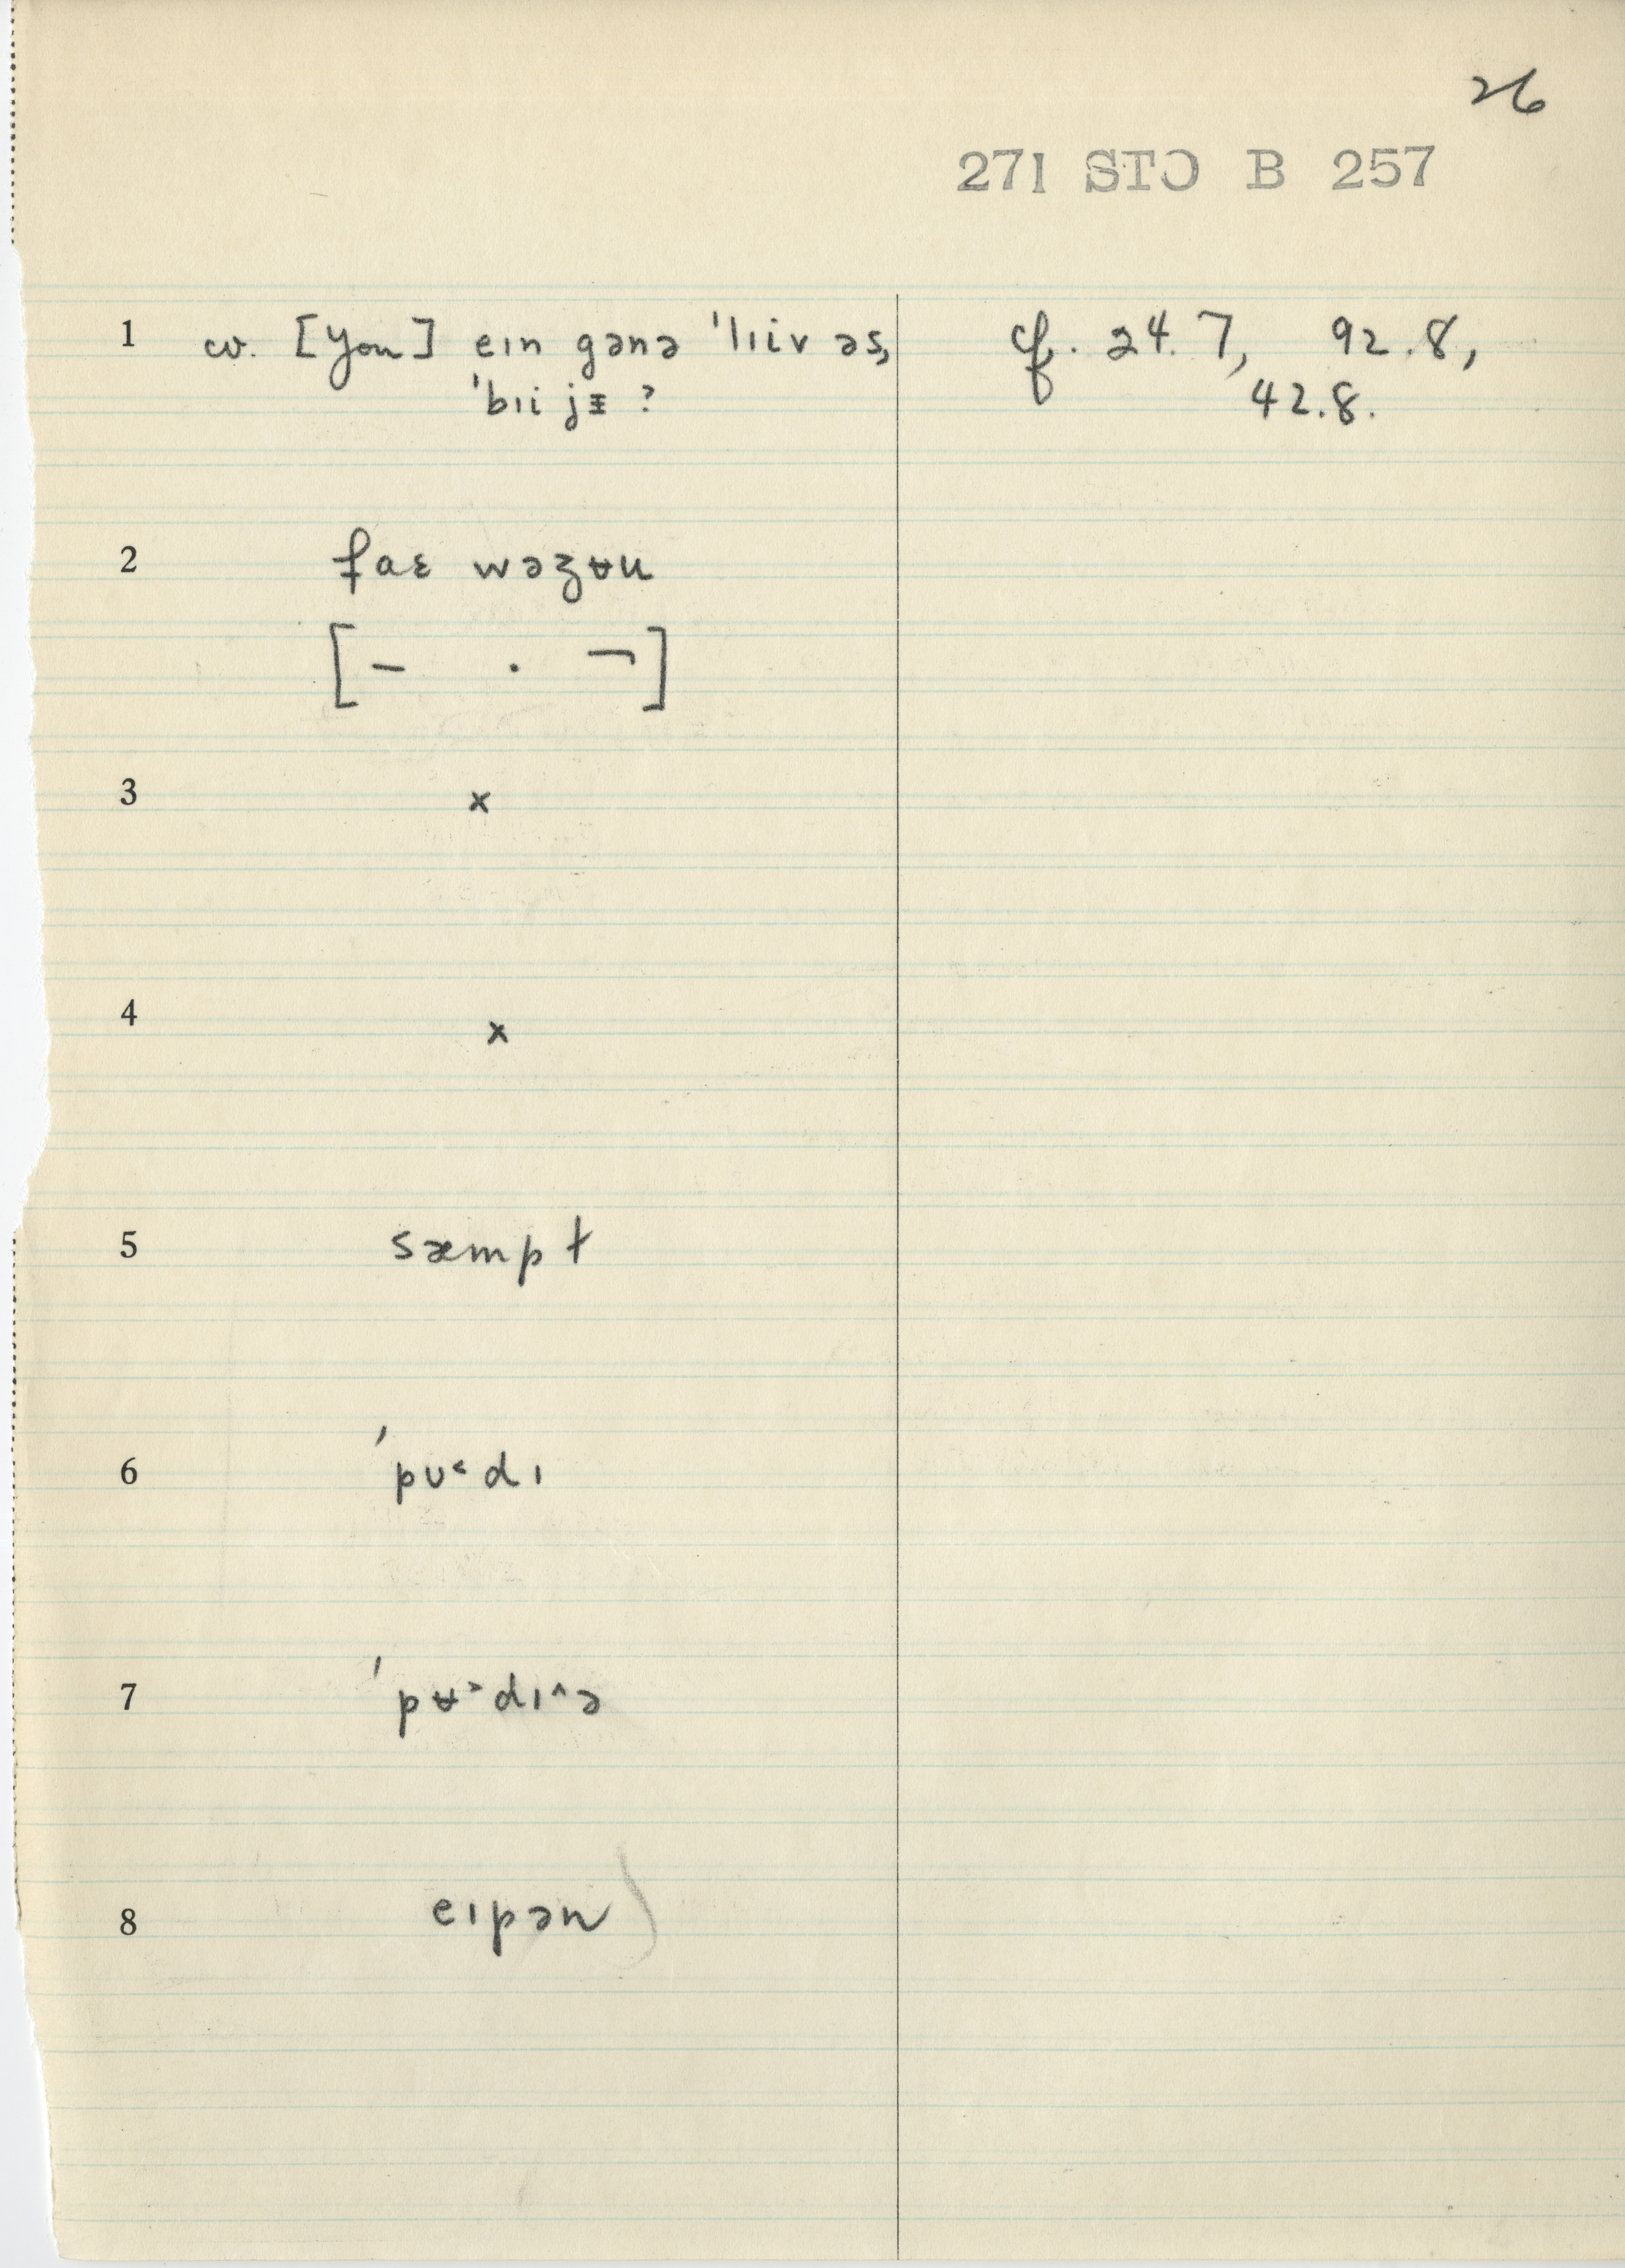 26
271 STO B 257
1 cv. [you] eɪn gənə ˈlɪiv əs, cf. 24.7, 92.8,
ˈbɪi jᵻ ? 42.8.
2 faɛ wəʒʉu
[– . ¬]
3 x
4 x
5 sæmpt
6 ˈpʊ˂dɪ
7 ˈpʉ˃dɪ^ə
8 eɪpən)